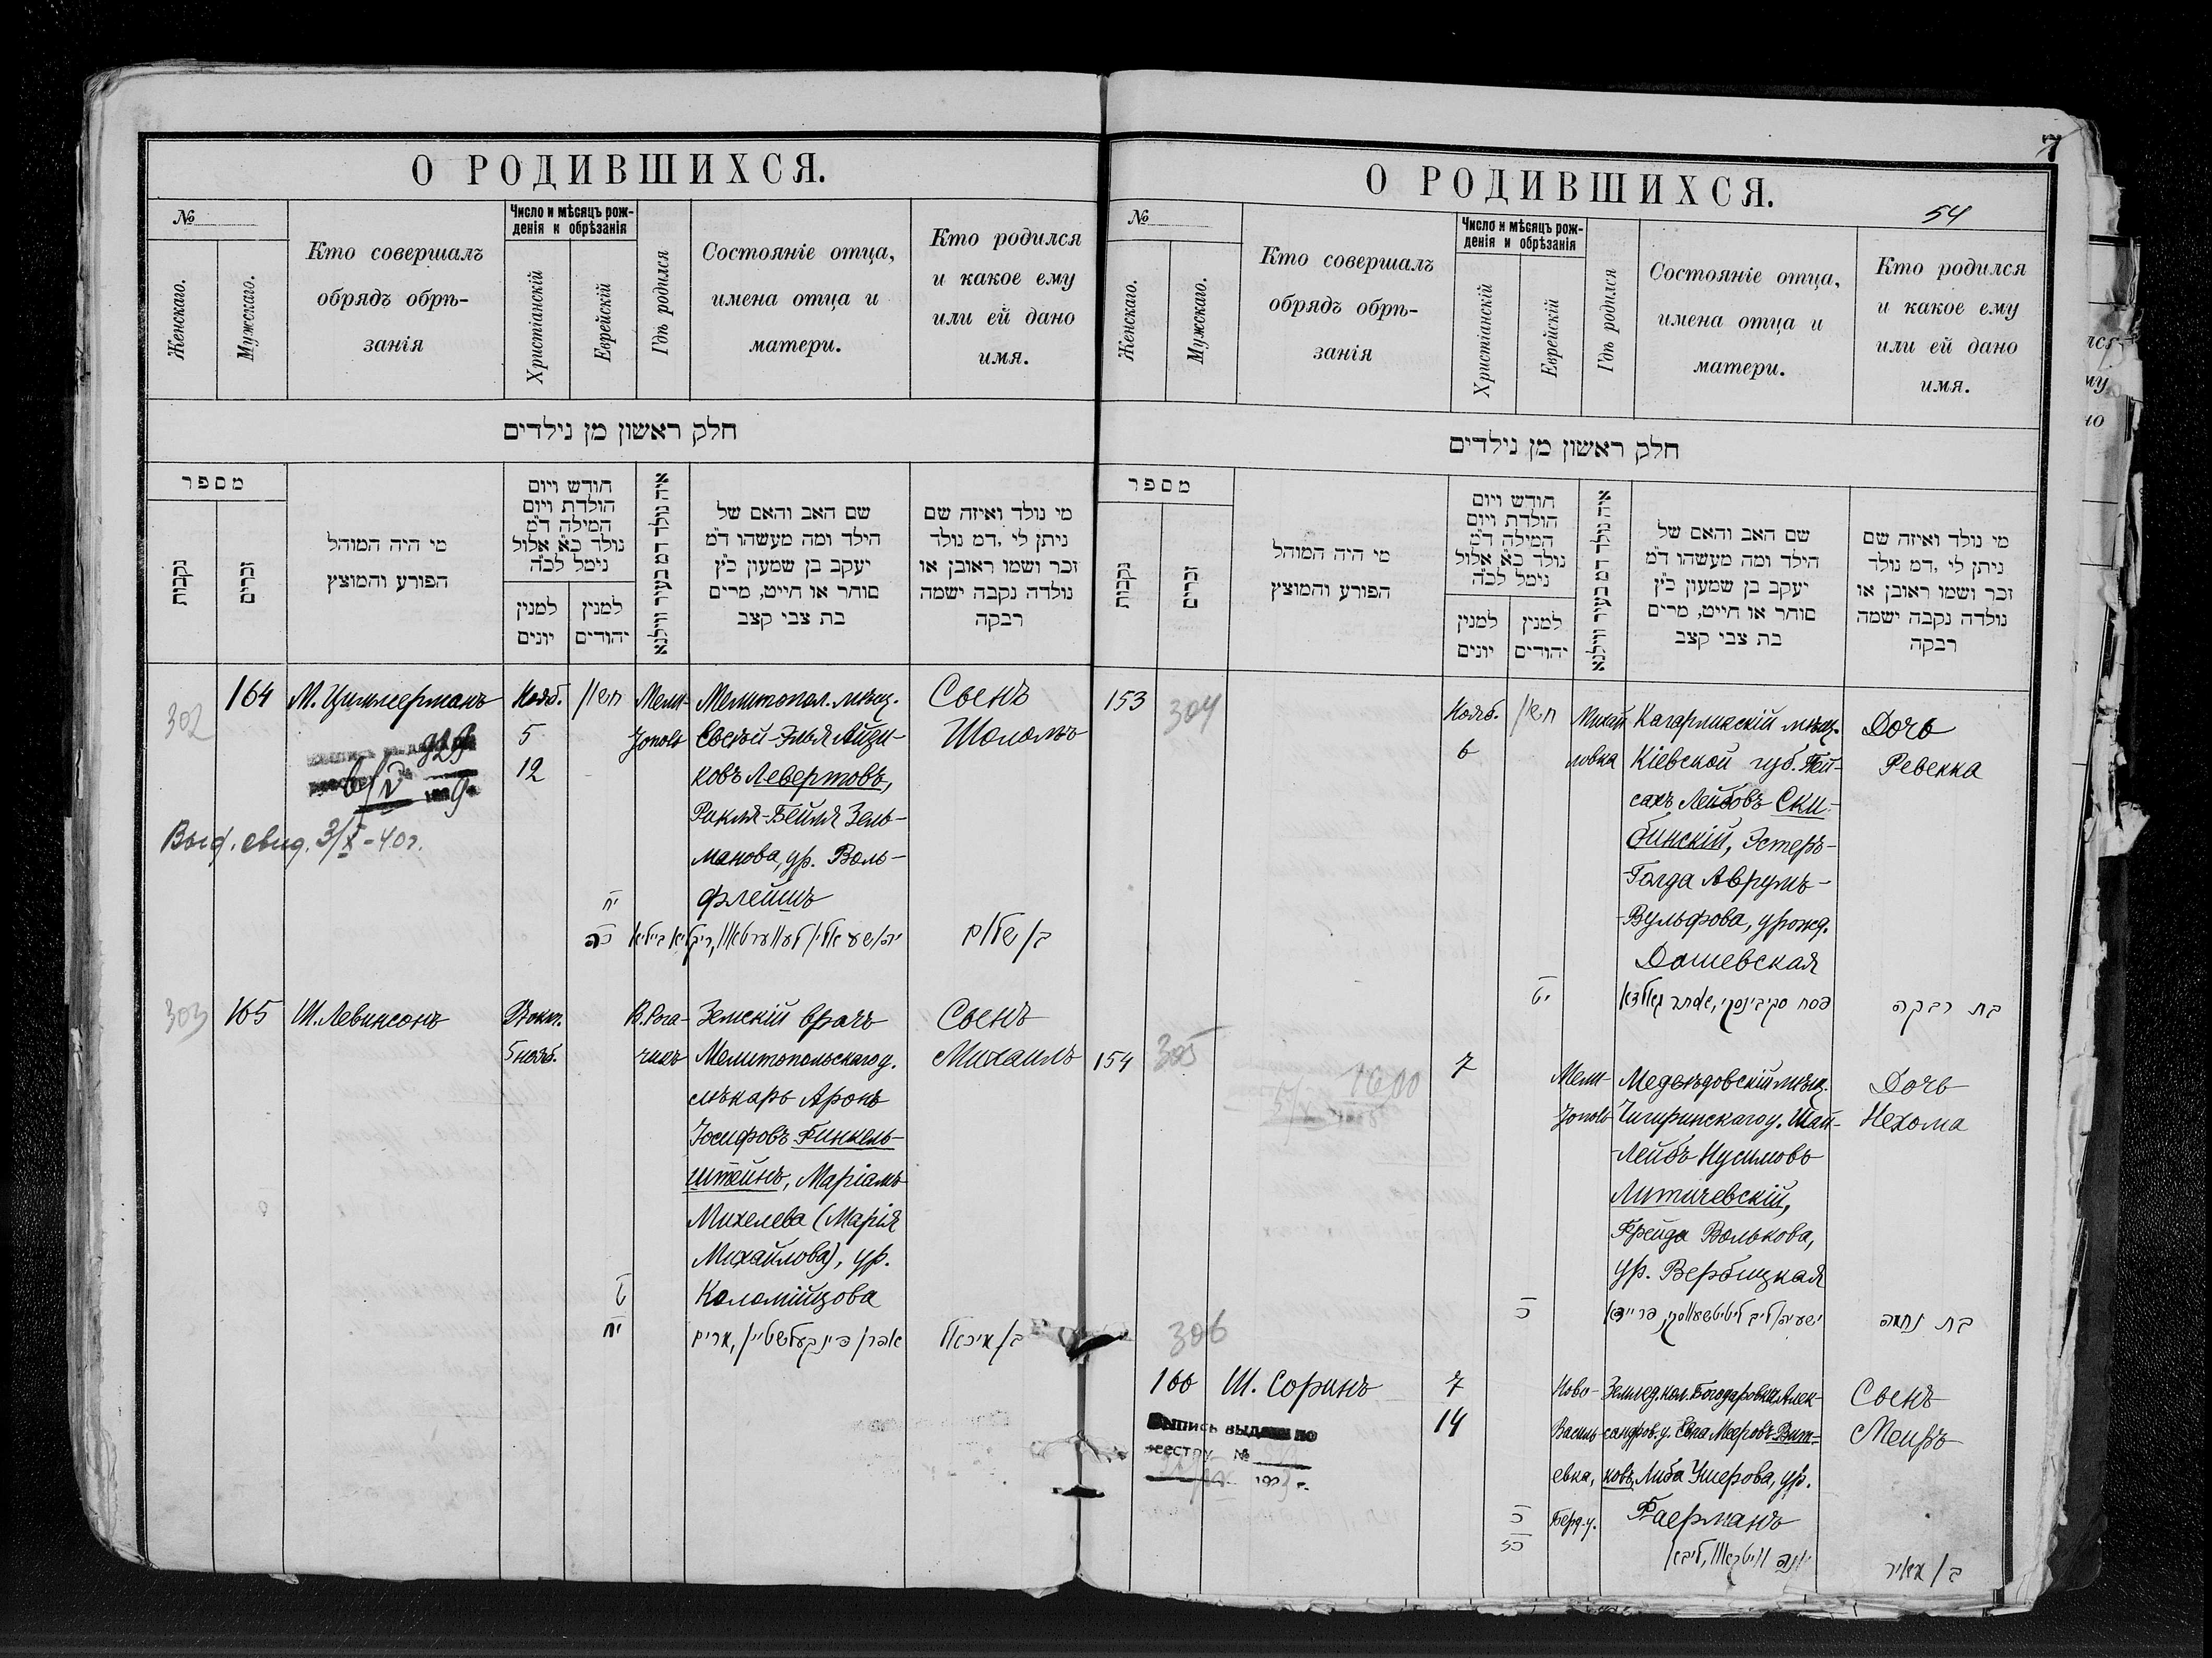 О РОДИВШИХСЯ.
№
Женскаго.
Мужскаго.
Кто совершалъ
обрядъ обрѣ-
занія
Число и мѣсяцъ рож-
денія и обрѣзанія
Христіанскій
Еврейскій
Гдѣ родился
Состояніе отца,
имена отца и
матери.
Кто родился
и какое ему
или ей дано
имя.
חלק ראשון מן נילדים
מספר
נקבות
זכרים
מי היה המוהל
הפורע והמוצץ
חודש ויום
הולדת ויום
המילה ד״מ
נולד כ״א אלול
נימל לכ״ה
למנין
יונים
למנין
יהודים
איה נולד דמ בעיר ווילנא
שם האב והאם של
הילד ומה מעשהו ד״מ
יעקב בן שמעון כ״ץ
סוחר או חייט, מרים
בת צבי קצב
מי נולד ואיזה שם
ניתן לי, דמ נולד
זכר ושמו ראובן או
נולדה נקבה ישמה
רבקה
302
164
М. Циммерманъ
Нояб.
5
12
חשון
Мели-
тополь
Мелитопол. мѣщ.
Евсѣй-Элья Айзи-
ковъ Левертовъ,
Рикля-Бейля Зель-
манова, ур. Воль-
флейшъ
Сынъ
Шоломъ
Выд. свид. 3/X-40г.
יח
כה
בן שלום
303
165
Ш. Левинсонъ
5 нояб.
В. Рога-
чикъ
Земскій врачъ
Мелитопольскаго у.
лѣкарь Аронъ
Іосифовъ Финкель-
штейнъ, Маріамъ
Михелева (Марія
Михайлова), ур.
Коломійцова
Сынъ
Михаилъ
יח
אהרן פינקעלשטיין, מרים
בן מיכאל
О РОДИВШИХСЯ.
7
54
№
Женскаго.
Мужскаго.
Кто совершалъ
обрядъ обрѣ-
занія
Число и мѣсяцъ рож-
денія и обрѣзанія
Христіанскій
Еврейскій
Гдѣ родился
Состояніе отца,
имена отца и
матери.
Кто родился
и какое ему
или ей дано
имя.
חלק ראשון מן נילדים
מספר
נקבות
זכרים
מי היה המוהל
הפורע והמוצץ
חודש ויום
הולדת ויום
המילה ד״מ
נולד כ״א אלול
נימל לכ״ה
למנין
יונים
למנין
יהודים
איה נולד דמ בעיר ווילנא
שם האב והאם של
הילד ומה מעשהו ד״מ
יעקב בן שמעון כ״ץ
סוחר או חייט, מרים
בת צבי קצב
מי נולד ואיזה שם
ניתן לי, דמ נולד
זכר ושמו ראובן או
נולדה נקבה ישמה
רבקה
153
304
Нояб.
6
חשון
Михай
ловка
Кагарликскій мѣщ.
Кіевской губ. Пей-
сахъ Лейбовъ Ски-
бинскій, Эстеръ-
Голда Аврумъ-
Вульфова, урожд.
Дашевская
Дочь
Ревекка
יט
פסח סקיבינסקי, אסתר גאלדא
בת רבקה
154
305
7
Мели-
тополь
Медвѣдовскій мѣщ.
Чигиринскаго у. Шай-
Лейбъ Нусимовъ
Литичевскій,
Фрейда Волькова,
ур. Вербицкая
Дочь
Нехома
כ
בת נחמה
306
166
Ш. Соринъ
7
14
Ново-
Василь-
евка,
Берд. у.
Землед. кол. Богодаровки Алек-
сандров. у. Евна Мееровъ Вит-
ковъ, Либа Ушерова, ур.
Фаерманъ
Сынъ
Меиръ
Выпись выдана по
реестру №
כ
כז
בן מאיר